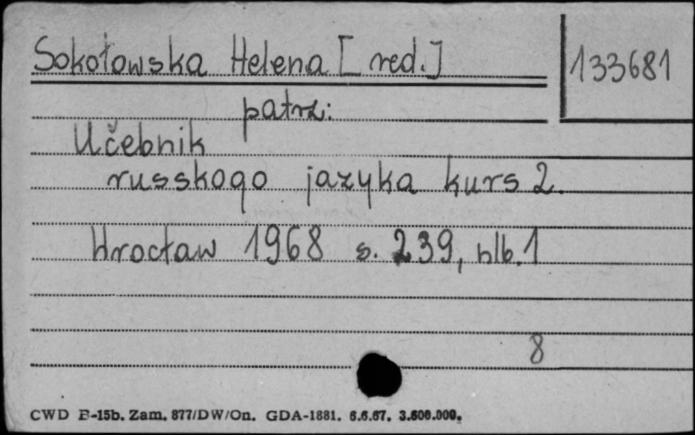 Sokołowska Helena [red.]
133681
patrz:
Učebnik
russkogo jazyka kurs 2.
Wrocław 1968 s. 239, nlb. 1
8
CWD B-15b. Zam. 877/DW/On. GDA-1881. 6.6.67. 3.600.000.